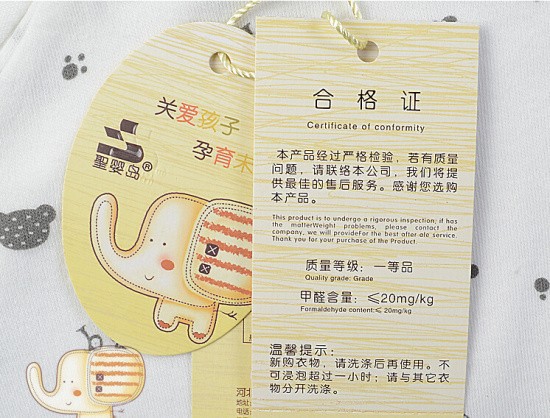 关爱孩子
孕育未
聖婴岛®
合格证
Certificate of conformity
本产品经过严格检验，若有质量
问题，请联络本公司，我们将提
供最佳的售后服务。感谢您选购
本产品。
This product is to undergo a rigorous inspection; it has
the matlerWeight problems, please contact the
company, we will provideFor the best after-ale service.
Thank you for your purchase of the Product.
质量等级：一等品
Quality grade: Grade
甲醛含量：≤20mg/kg
Formaldehyde content:≤ 20mg/kg
温馨提示：
新购衣物，请洗涤后再使用。不
可浸泡超过一小时；请与其它衣
物分开洗涤。
河北
地址
电话